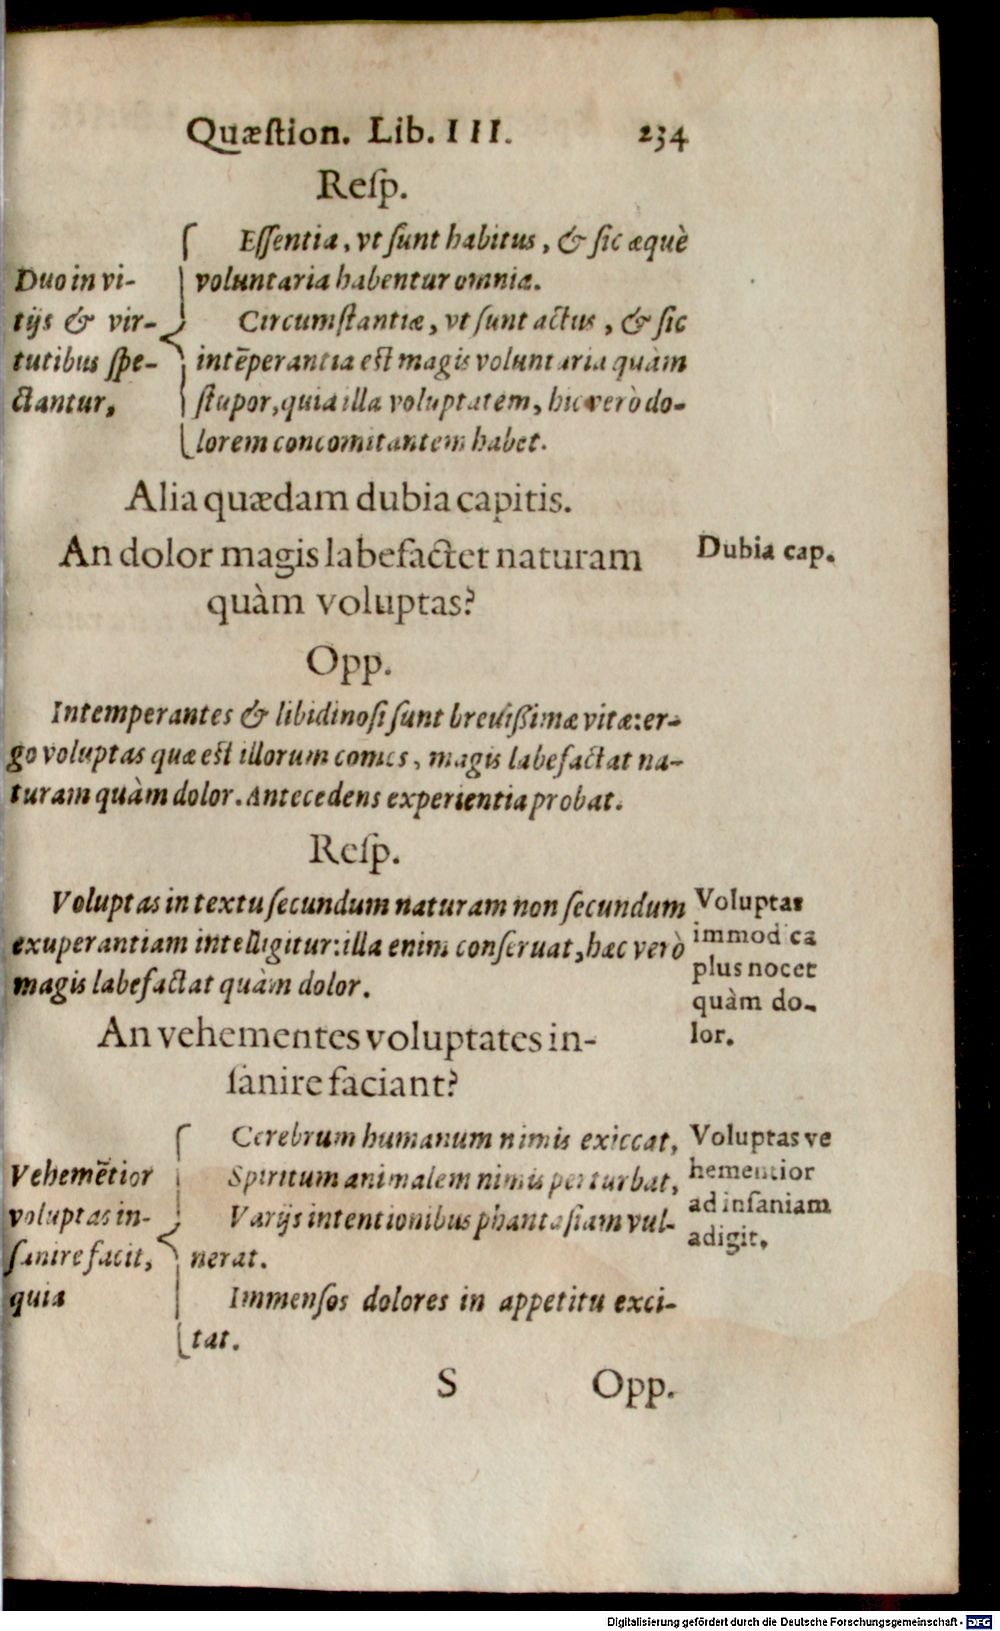 Quæstion. Lib. III. 234
Resp.
Duo in vi-
tijs & vir-
tutibus spe-
ctantur,
Essentia, vt sunt habitus, & sic æquè
voluntaria habentur omnia.
Circumstantiæ, vt sunt actus, & sic
intēperantia est magis voluntaria quàm
stupor, quia illa voluptatem, hic verò do-
lorem concomitantem habet.
Alia quædam dubia capitis.
An dolor magis labefactet naturam
quàm voluptas?
Dubia cap.
Opp.
Intemperantes & libidinosi sunt breuissimæ vitæ: er-
go voluptas quæ est illorum comes, magis labefactat na-
turam quàm dolor. Antecedens experientia probat.
Resp.
Voluptas in textu secundum naturam non secundum
exuperantiam intelligitur: illa enim conseruat, hæc verò
magis labefactat quàm dolor.
Voluptas
immodica
plus nocet
quàm do-
lor.
An vehementes voluptates in-
sanire faciant?
Vehemētior
voluptas in-
sanire facit,
quia
Cerebrum humanum nimis exiccat,
Spiritum animalem nimis perturbat,
Varijs intentionibus phantasiam vul-
nerat.
Immensos dolores in appetitu exci-
tat.
Voluptas ve
hementior
ad insaniam
adigit.
S Opp.
Digitalisierung gefördert durch die Deutsche Forschungsgemeinschaft - DFG